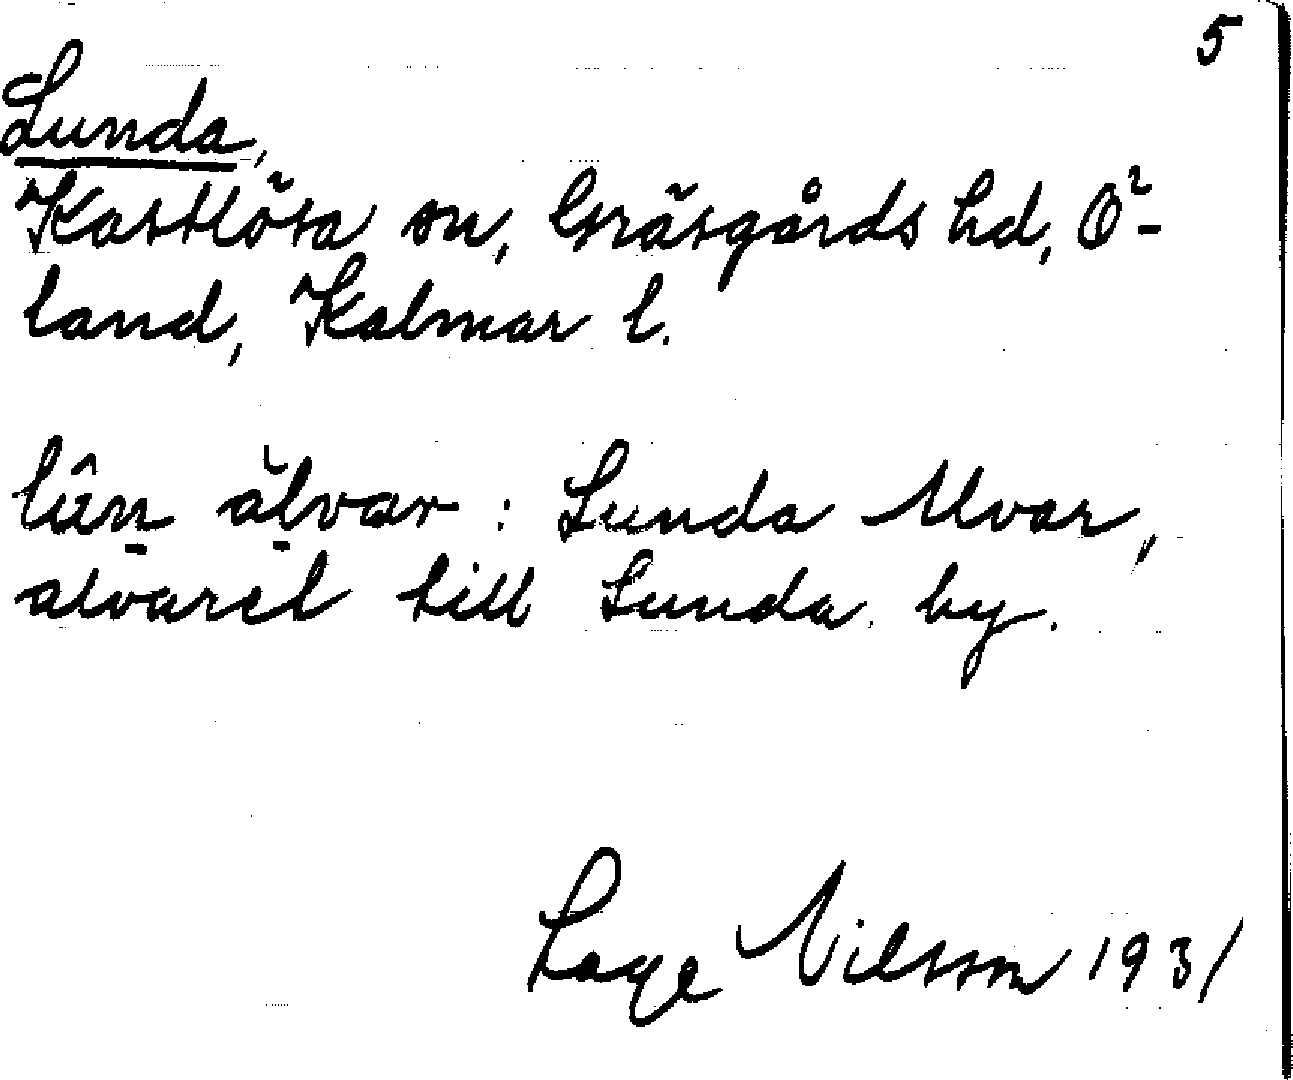 5
Lunda,
Kastlösa sn, Gräsgårds hd, Ö-
land, Kalmar l.
lûn älvar : Lunda Alvar,
alvaret till Lunda by.
Lage Nilsson 1931